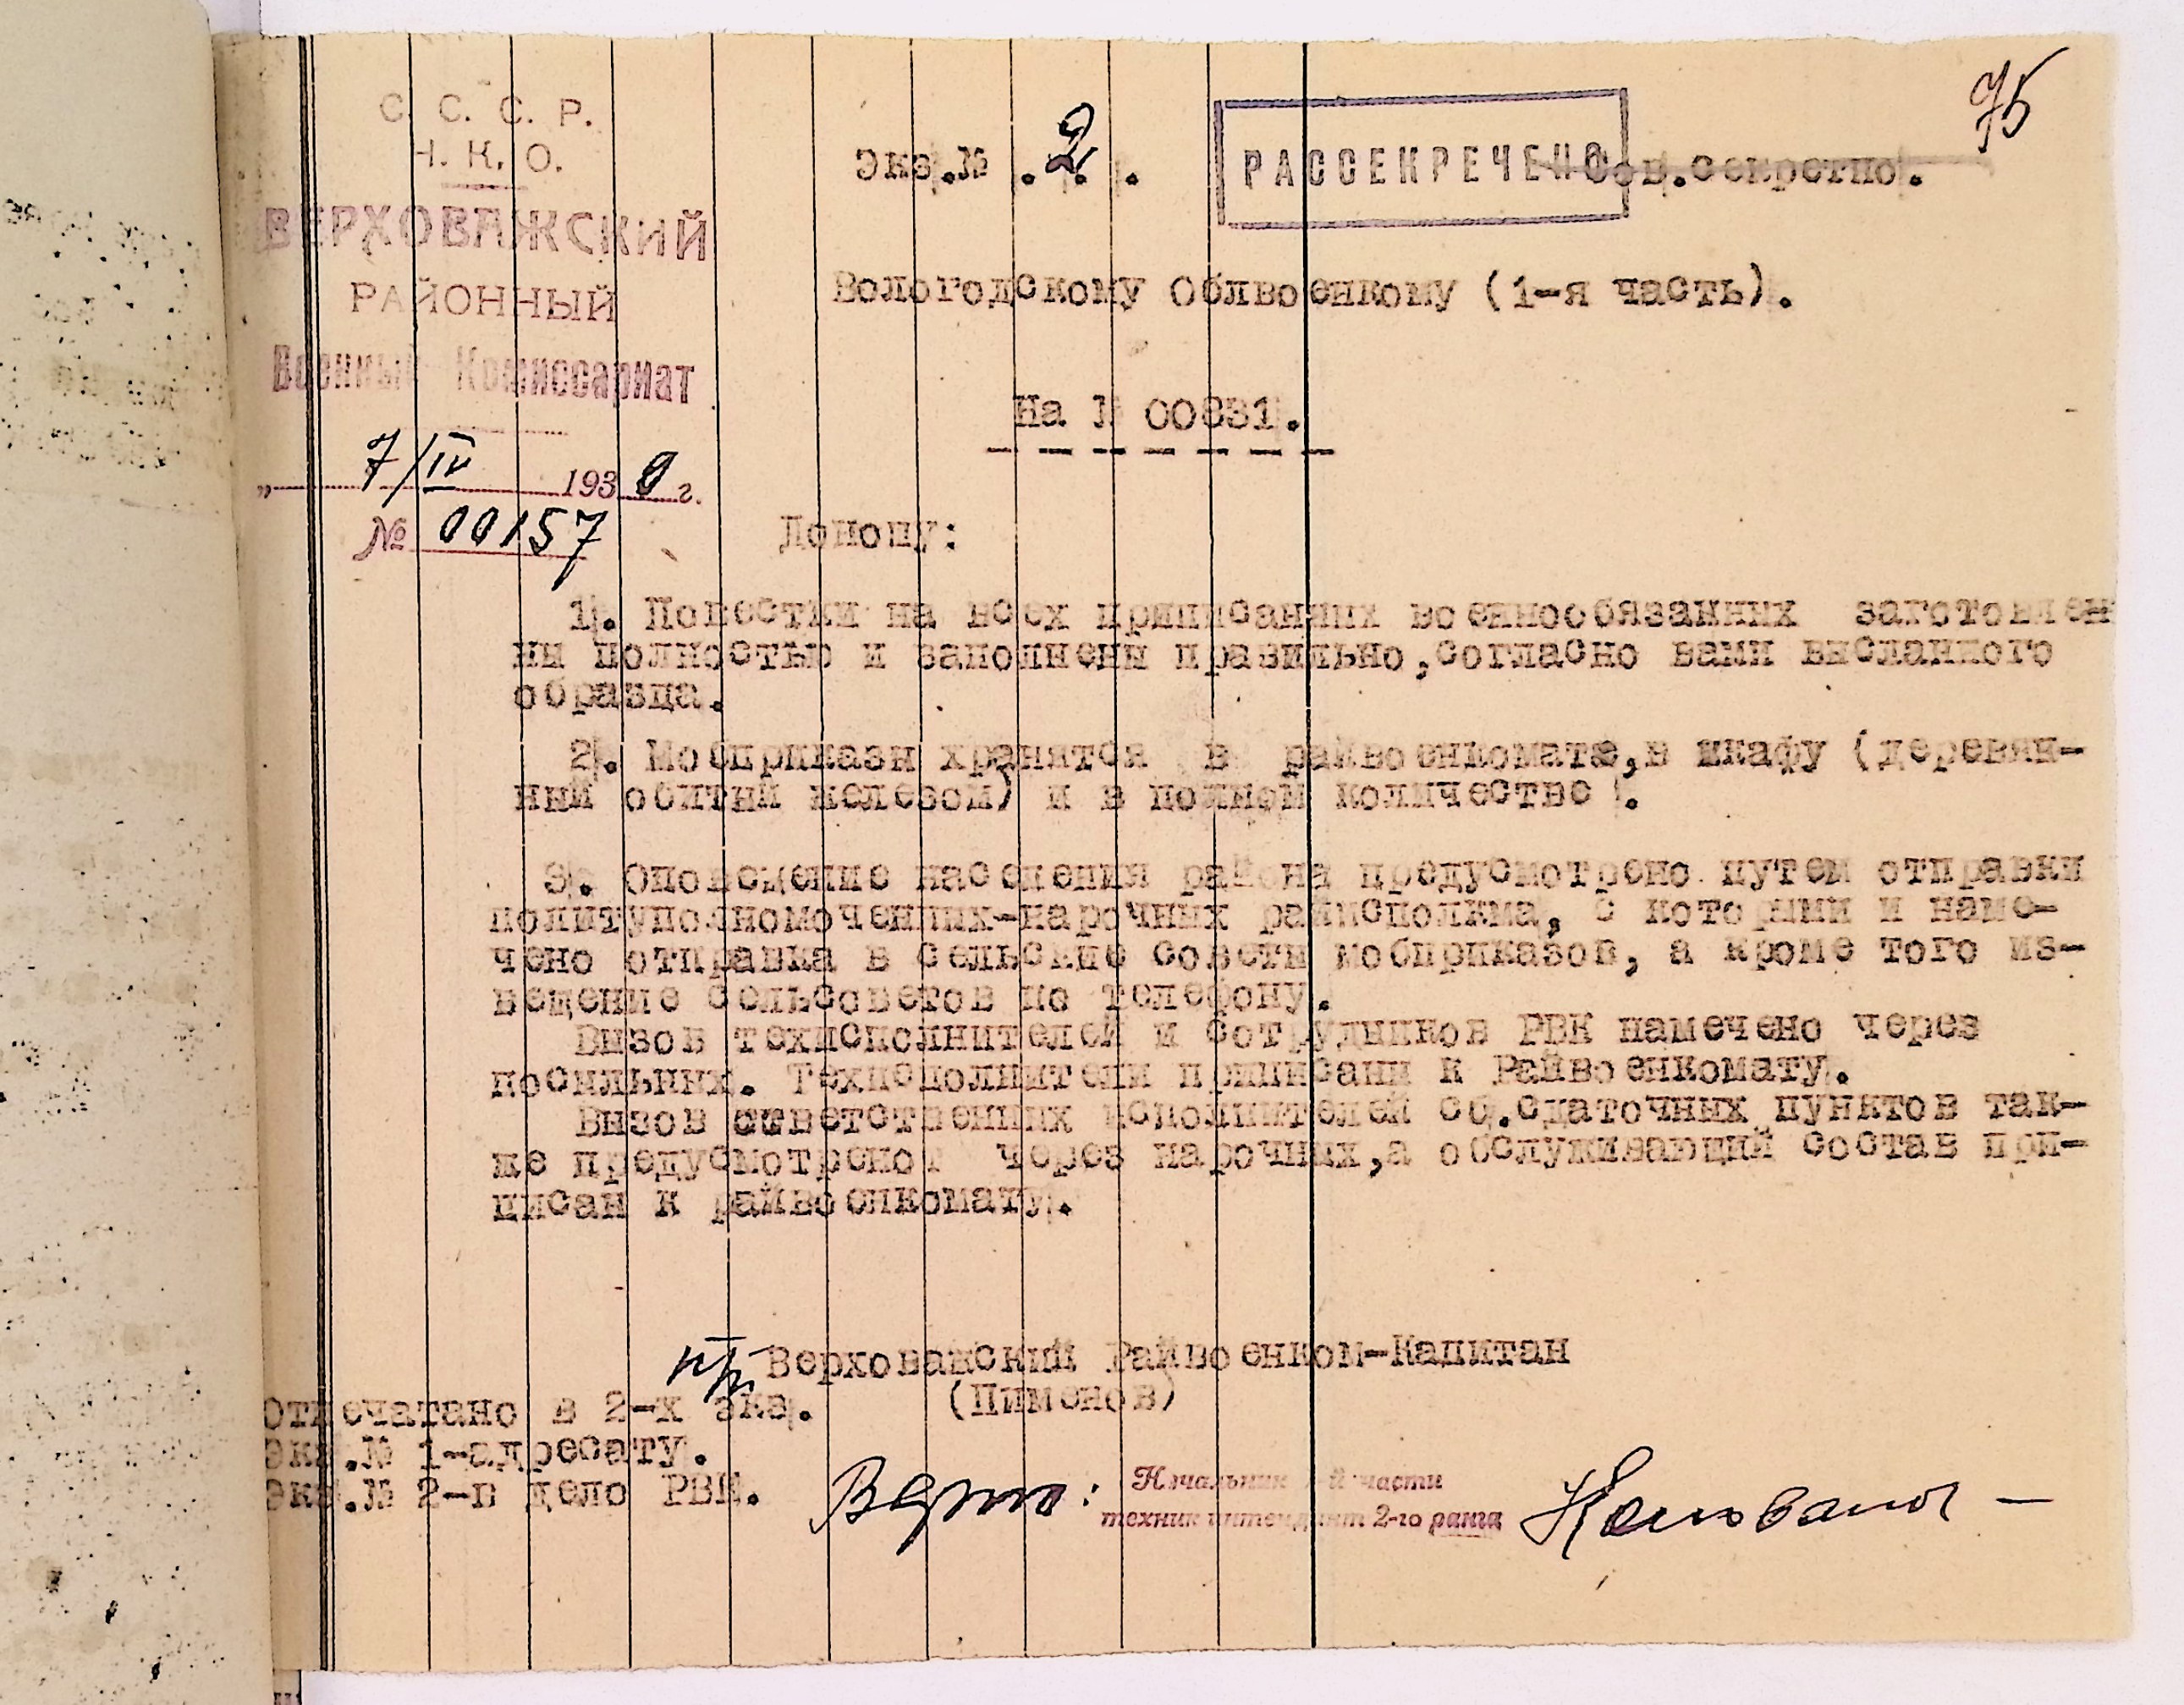 75
С. С. С. Р.
Н. К. О.
ВЕРХОВАЖСКИЙ
РАЙОННЫЙ
Военный Комиссариат
7/IV 193 г.
№ 00157
Экз.№ .2. .
РАССЕКРЕЧЕНО
Сов.секретно.
Вологодскому Облвоенкому (1-я часть).
На № 00831.
Доношу:
1. Повестки на всех приписанных военнообязанных заготовлен
ны полностью и заполнены правильно,согласно вами высланного
образца.
2. Мобприказы хранятся в райвоенкомате,в шкафу (деревян-
ный обитый железом) и в полном количестве .
3. Оповещение населения района предусмотрено путем отправки
политуполномоченных-нарочных райисполкма, с которыми и наме-
чено отправка в сельские советы мобприказов, а кроме того из-
вещение сельсоветов по телефону.
Вызов техисполнителей и сотрудников РВК намечено через
посыльных. Техисполнители приписаны к Райвоенкомату.
Вызов ответственных исполнителей сб.сдаточных пунктов так-
же предусмотрено через нарочных,а обслуживающий состав при-
писан к райвоенкомату.
Верховажский Райвоенком-Капитан
(Пименов)
Отпечатано в 2-х экз.
Экз.№ 1-адресату.
Экз.№ 2-в дело РВК.
Верно:
Начальник -й части
техник интендант 2-го ранга